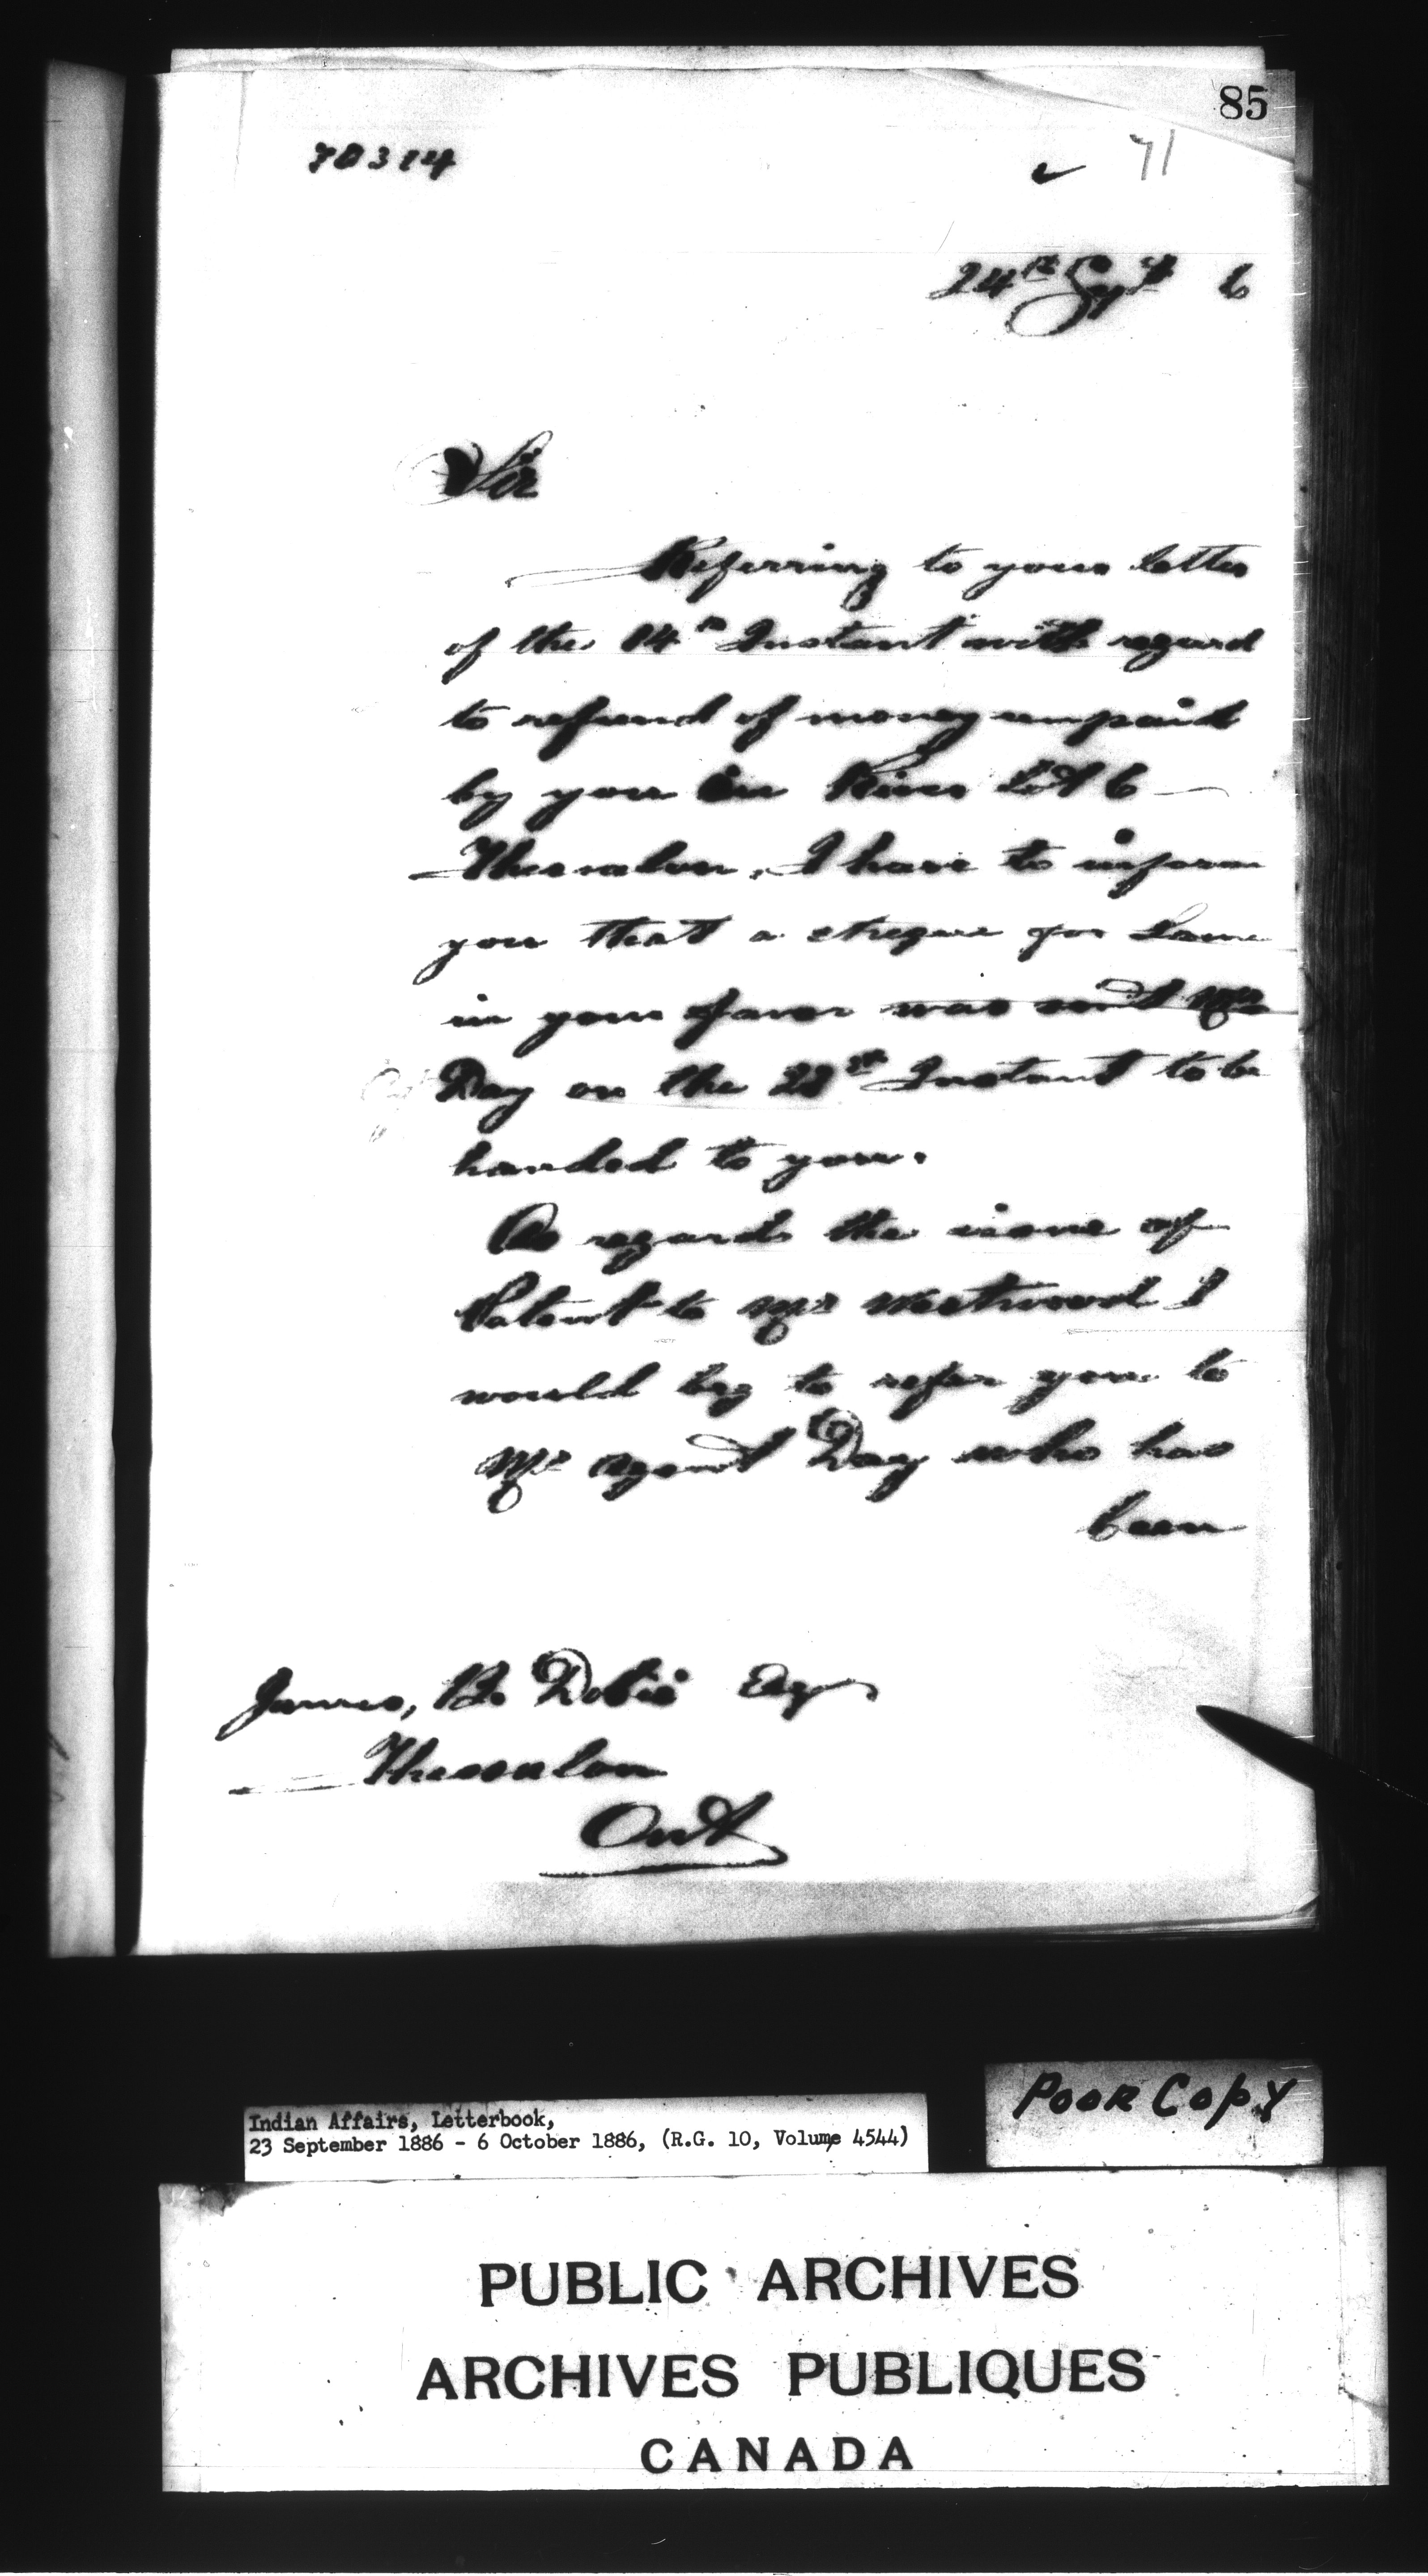 85
70314
71
24th Sept 6
Sir
Referring to your letter
of the 14th Instant with regard
to refund of money
by you on River Lot 6
Thessalon, I have to inform
you that a cheque for Same
in your favor was sent Mr
Day on the 22nd Instant to be
handed to you.
As regards the issue of
Patent to Mr Westwood I
would beg to refer you to
Mr Agent Day who has
been
James, B. Dobie Esq
Thessalon
Ont
Poor Copy
Indian Affairs, Letterbook,
23 September 1886 - 6 October 1886, (R.G. 10, Volume 4544)
PUBLIC ARCHIVES
ARCHIVES PUBLIQUES
CANADA